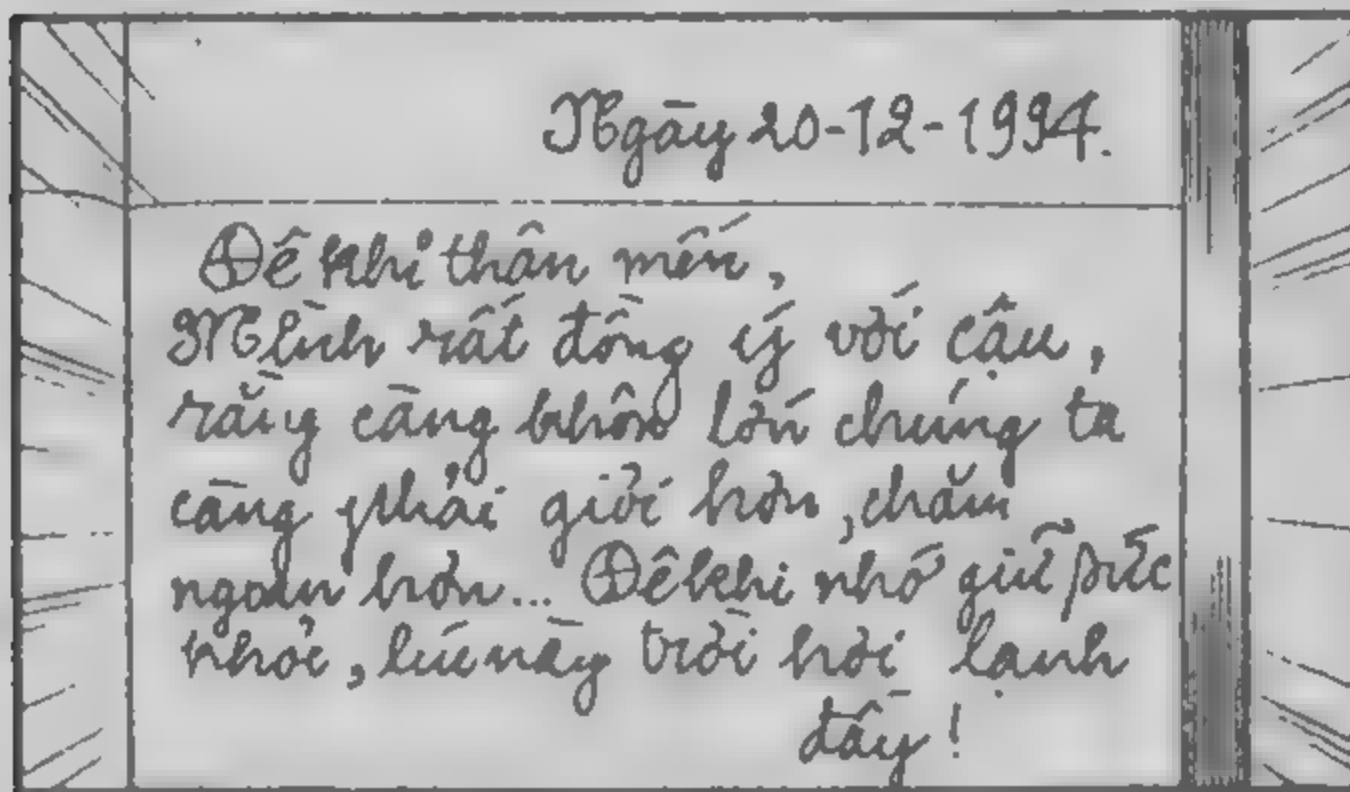 Ngày 20-12-1994.
Đêkhi thân mến,
Mình rất đồng ý với cậu,
rằng càng khôn lớn chúng ta
càng phải giỏi hơn, chăm
ngoan hơn... Đêkhi nhớ giữ sức
khỏe, lúc này trời hơi lạnh
đấy!